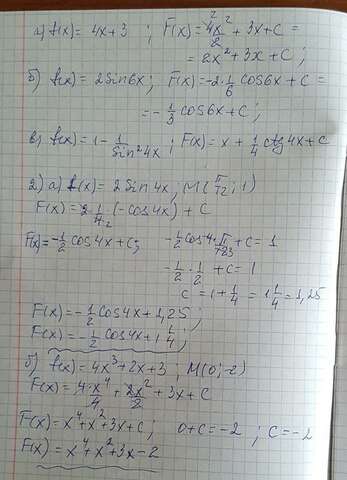 а) f(x) = 4x+3 ; F(x) = 4x²/2 + 3x + C =
= 2x² + 3x + C ;
б) f(x) = 2sin6x ; F(x) = -2·1/6 cos6x + C =
= -1/3 cos6x + C ;
в) f(x) = 1 - 1/sin²4x ; F(x) = x + 1/4 ctg4x + C
2) а) f(x) = 2 sin 4x ; M(π/12 ; 1)
F(x) = 2·1/4 (-cos4x) + C
F(x) = -1/2 cos4x + C ; -1/2 cos 4·π/12 + C = 1
-1/2 · 1/2 + C = 1
C = 1 + 1/4 = 1 1/4 = 1,25
F(x) = -1/2 cos4x + 1,25 ;
F(x) = -1/2 cos4x + 1 1/4 ;
б) f(x) = 4x³ + 2x + 3 ; M(0; -2)
F(x) = 4·x⁴/4 + 2x²/2 + 3x + C
F(x) = x⁴ + x² + 3x + C ; 0 + C = -2 ; C = -2
F(x) = x⁴ + x² + 3x - 2